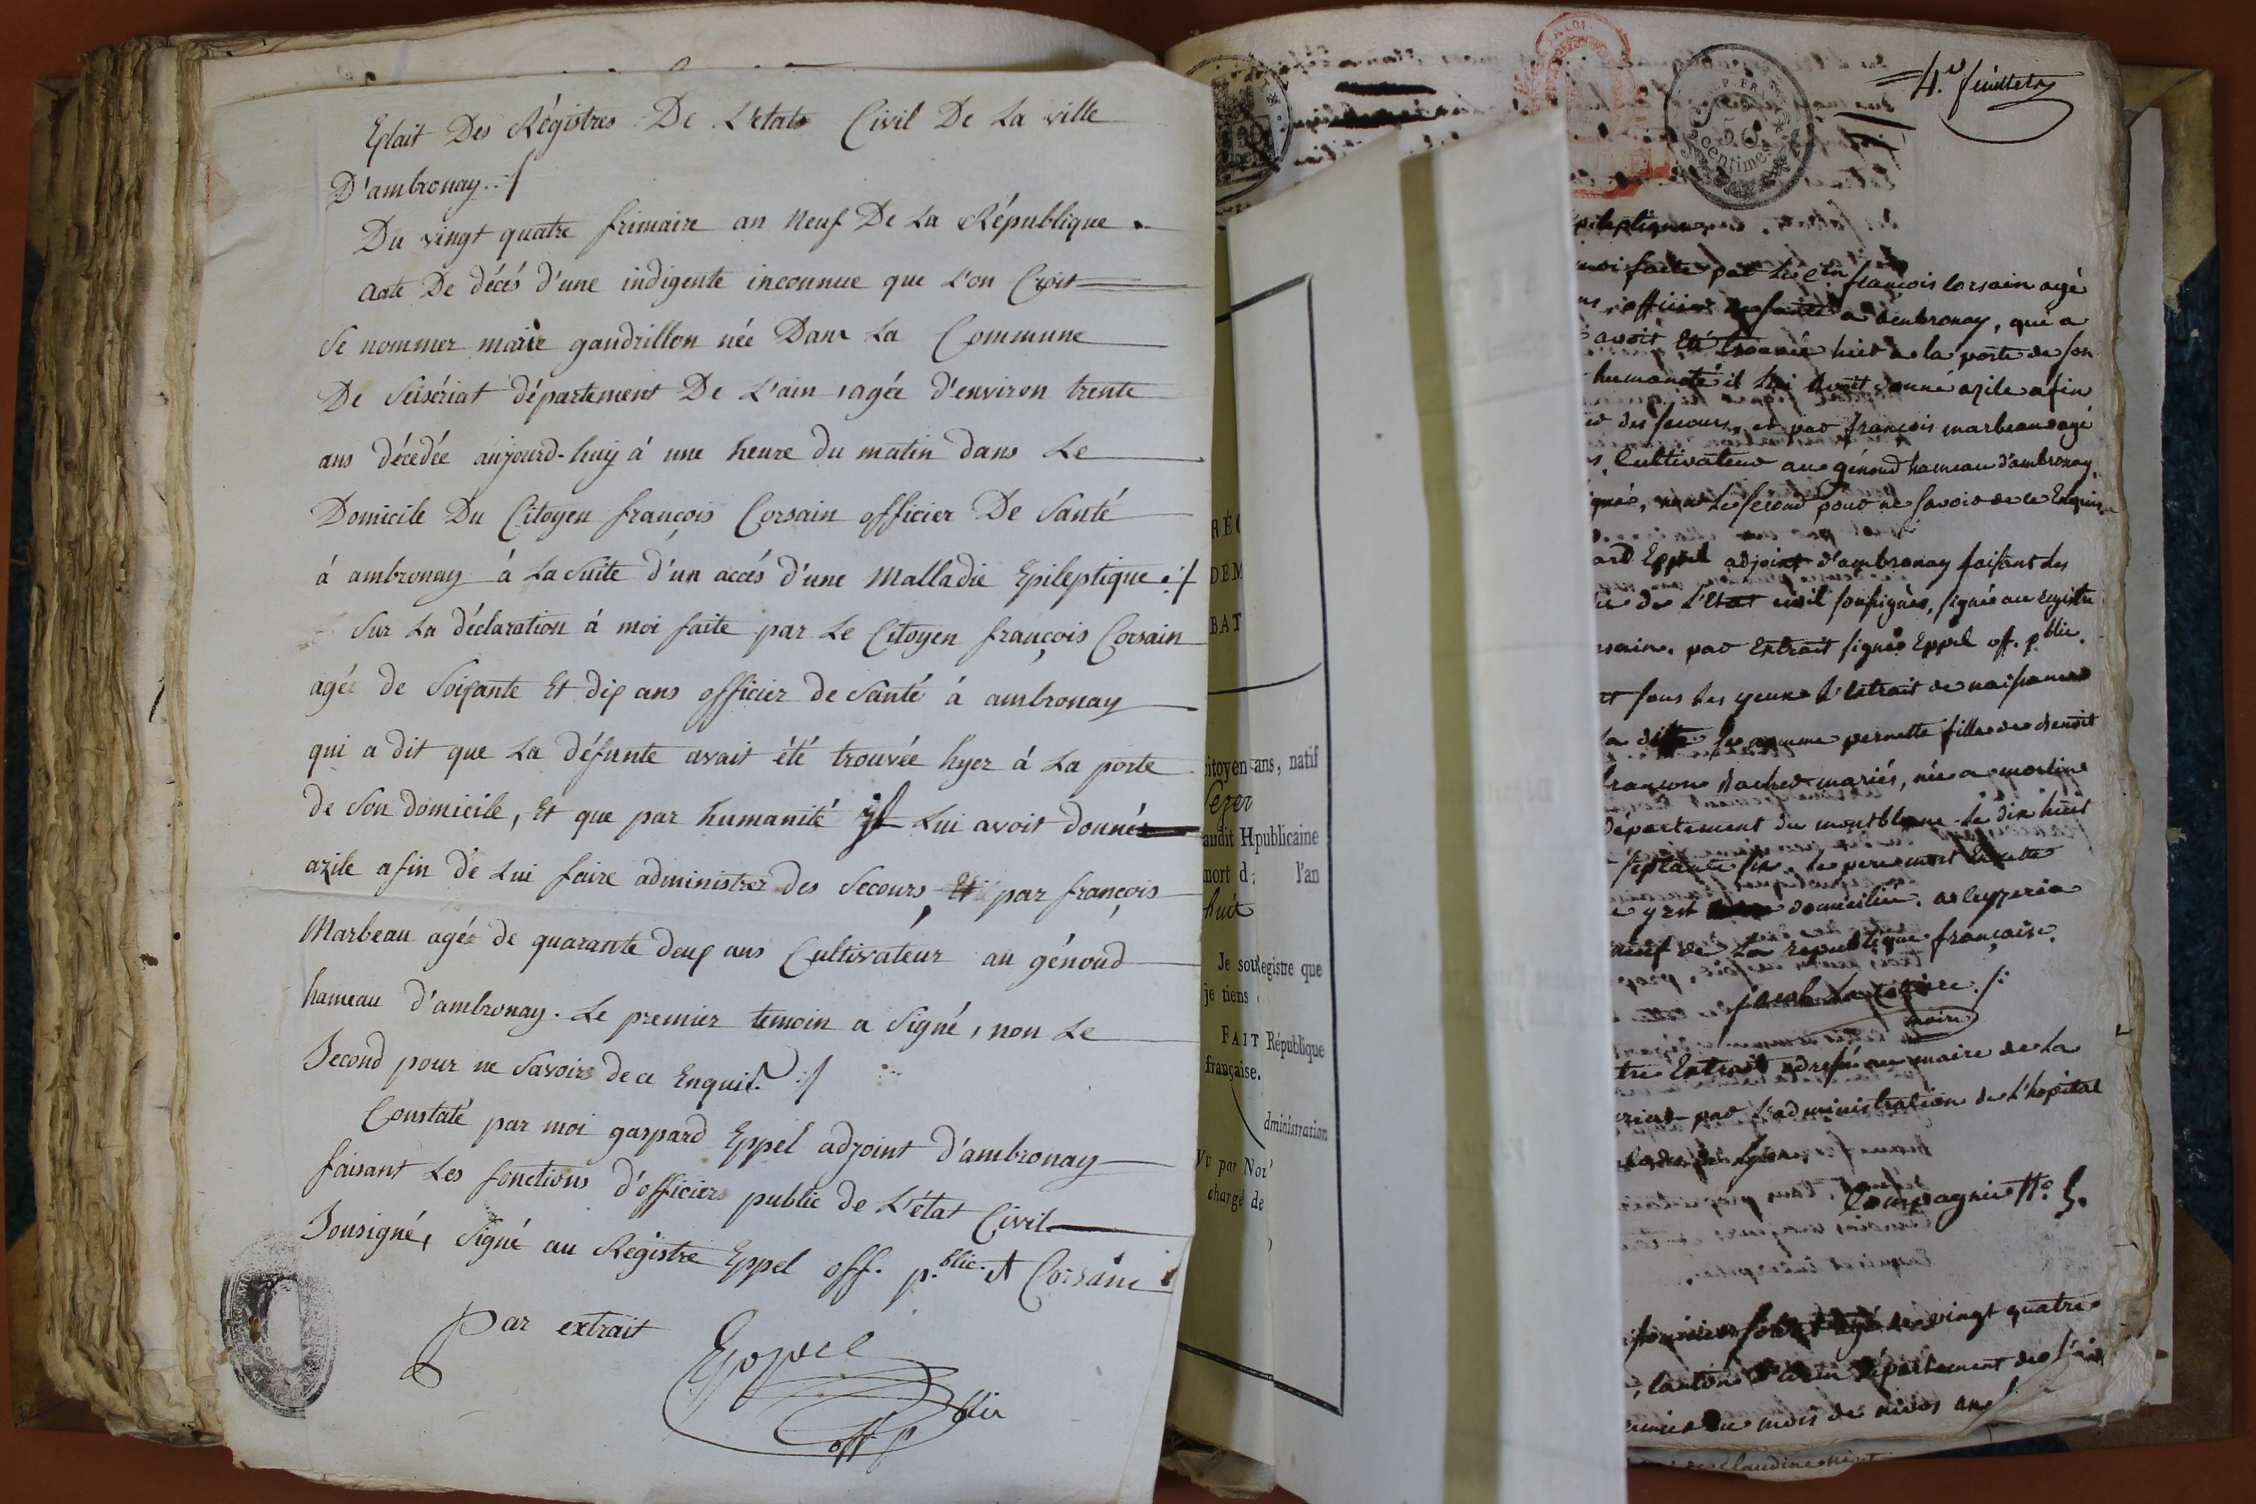 Extait Des Régistres De L'etat Civil De La ville
D'ambronay ./
Du vingt quatre frimaire an Neuf De La République.
Acte De décés d'une indigente inconnue que L'on Croit
Se nommer marie gandrillon née Dans La Commune
De Seisériat département De L'ain, agée d'environ trente
ans décédée aujourd-huy á une heure du matin dans Le
Domicile Du Citoyen françois Corsain officier De Santé
á ambronay á La Suite d'un accés d'une Malladie Epileptique ./
Sur La déclaration á moi faite par Le Citoyen françois Corsain
agée de Soixante Et dix ans officier de Santé á ambronay
qui a dit que La défunte avait été trouvée hyer á La porte
de Son domicile, Et que par humanité il Lui avoit donné
azile afin de Lui faire administrer des Secours, Et par françois
Marbeau agée de quarante deux ans Cultivateur au génoud
hameau d'ambronay. Le premier temoin a Signé, non Le
Second pour ne Savoir de ce Enquis. ./
Constaté par moi gaspard Eppel adjoint d'ambronay
faisant Les fonctions d'officier public de L'état Civil
Sousigné, Signé au Régistre Eppel off. p.blic. et Corsain
Par extrait
Eppel
off p blic
RÉ
DEM
BAT
citoyen ans, natif
audit H publicaine
mort d l'an
huit
Je sou Registre que
je tiens
FAIT République
française.
dministration
Vu par No
chargé de
4.e feuillet
50
centimes
epileptique
moi faite par Le C.en françois Corsain agé
officier de santé a ambronay, qui a
avoit Eté trouvée hier a la porte de son
humanité il lui avoit donné azile afin
des secours, et par françois marbeau agé
Cultivateur au génoud hameau d'ambronay,
signé, non Le second pour ne savoir de ce Enquis
ard Eppel adjoint d'ambronay faisant les
de L'Etat civil soussignés, signé au registre
rsain. par Extrait signé Eppel off. p.blic.
sous les yeux L'extrait de naissance
la ditte se nomme pernette fille de benoit
mariés, née a
Département du montblanc le dix huit
septante six. le pere mort
y est domicilié. a leyzeria
neuf de La republique française.
maire
Extrait adressé au maire de la
par L'administration de L'hopital
de Lyon.
Compagnie N.o 5.
agé de vingt quatre
canton département de L'ain
du mois de nivos an